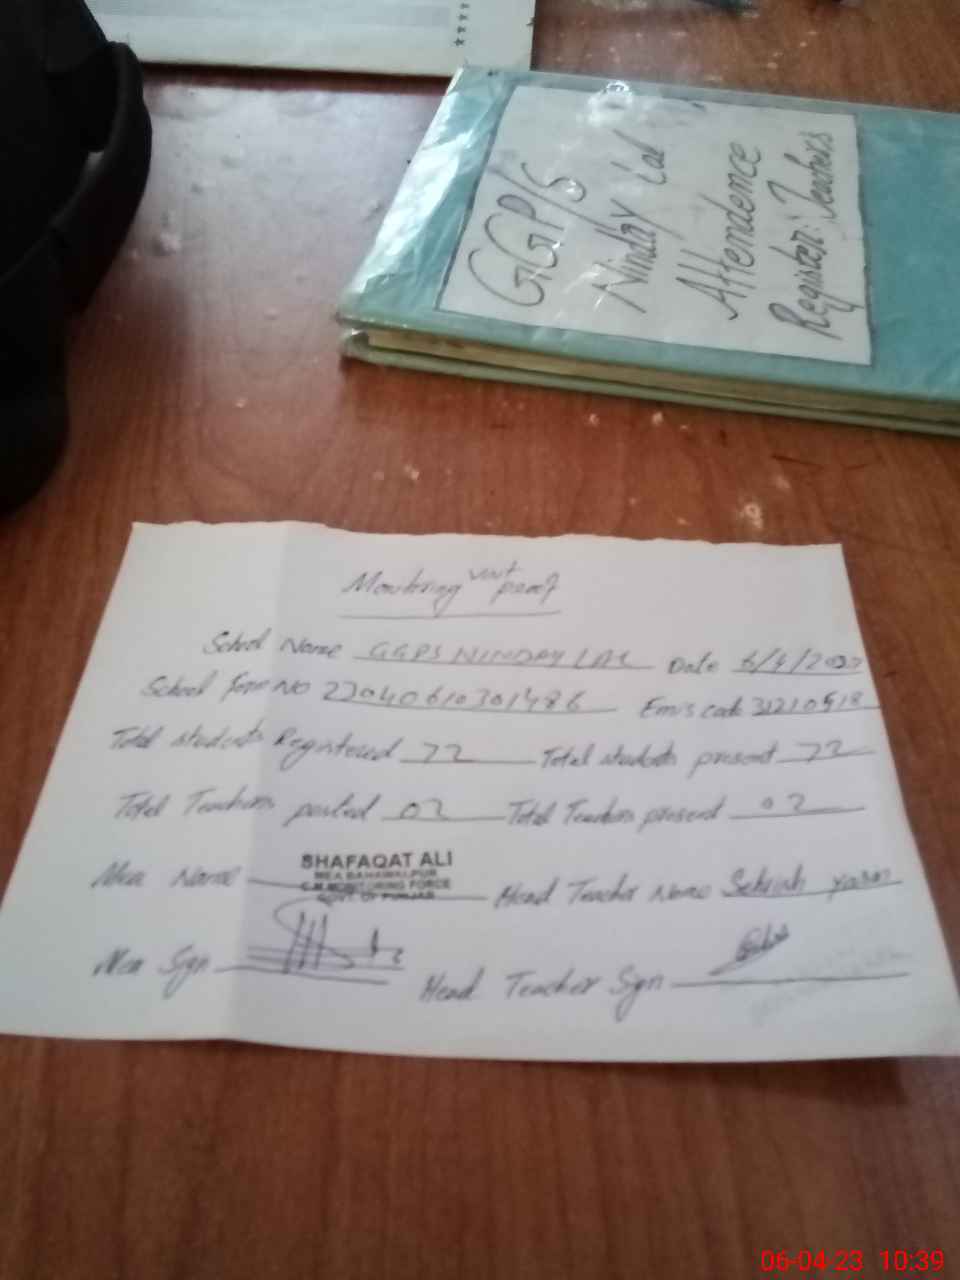 GGP/S
Ninday Lal
Attendence
Register: Teachers
Monitoring visit proof
School Name GGPS NINDAY LAL Date 6/4/2023
School form No 23040610301486 Emis code 31210518
Total students Registered 72 Total students present 72
Total Teachers posted 02 Total Teachers present 02
Mea Name SHAFAQAT ALI
MEA BAHAWALPUR
C.M MONITORING FORCE
GOVT. OF PUNJAB
Head Teacher Name
Mea Sign
Head Teacher Sign
06-04-23 10:39